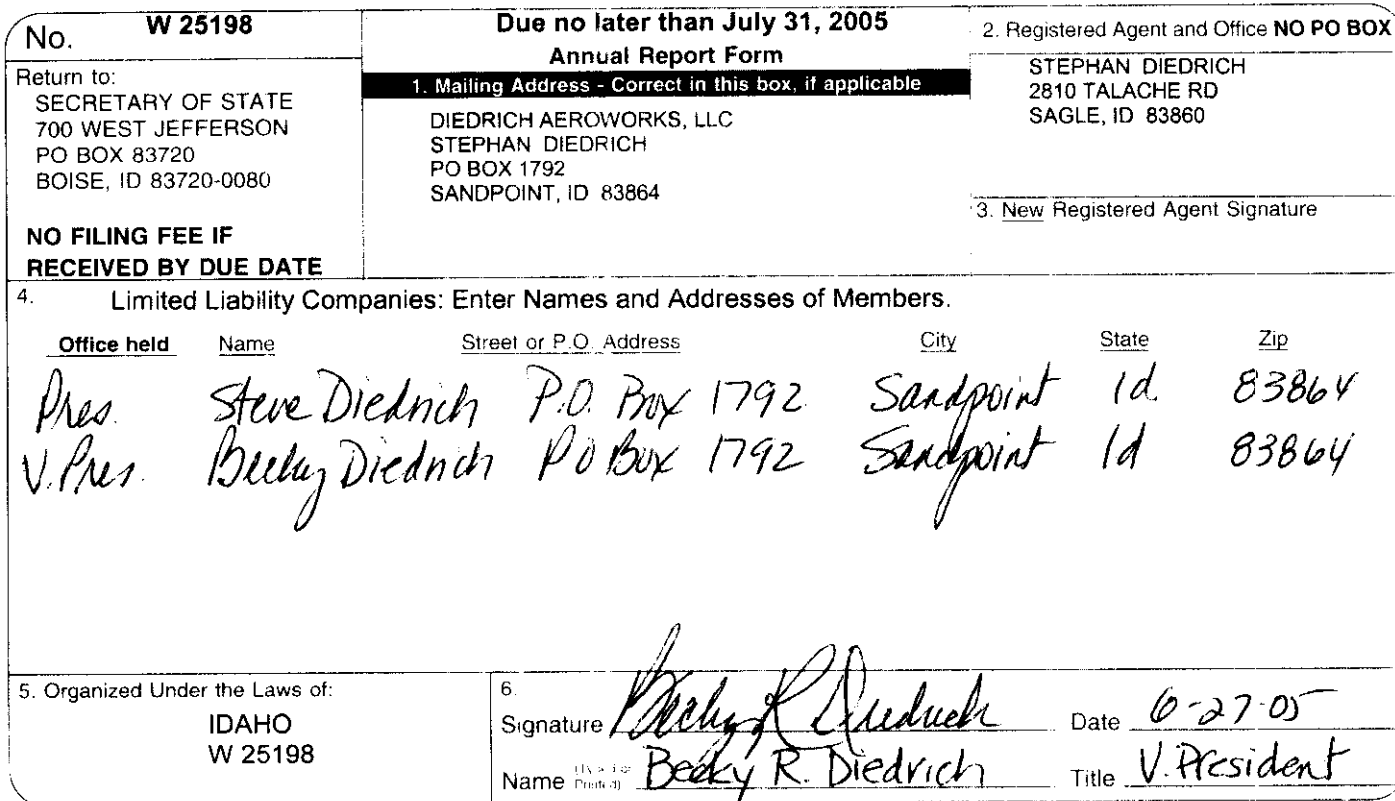 No. W 25198
Return to:
SECRETARY OF STATE
700 WEST JEFFERSON
PO BOX 83720
BOISE, ID 83720-0080
NO FILING FEE IF
RECEIVED BY DUE DATE
Due no later than July 31, 2005
Annual Report Form
1. Mailing Address - Correct in this box, if applicable
DIEDRICH AEROWORKS, LLC
STEPHAN DIEDRICH
PO BOX 1792
SANDPOINT, ID 83864
2. Registered Agent and Office NO PO BOX
STEPHAN DIEDRICH
2810 TALACHE RD
SAGLE, ID 83860
3. New Registered Agent Signature
4. Limited Liability Companies: Enter Names and Addresses of Members.
Office held Name Street or P.O. Address City State Zip
Pres. Steve Diedrich P.O. Box 1792 Sandpoint Id. 83864
V. Pres. Becky Diedrich PO Box 1792 Sandpoint Id 83864
5. Organized Under the Laws of:
IDAHO
W 25198
6.
Signature Becky R Diedrich Date 6-27-05
Name Becky R. Diedrich Title V. President